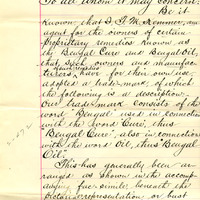 To all whom it may concern:
Be it
known, that I, F. M. Kemmer, am
agent for the owners of certain
proprietary remedies known as
the Bengal Cure and Bengal Oil,
that such owners and manufac-
turers, have for their own use,
adopted a trade-mark, of which
the following is a description.
Our trade mark consists of the
word Bengal used in connection
with the word Cure, thus
Bengal Cure, also in connection
with the word Oil, thus Bengal
Oil.
This has generally been ar-
ranged as shown in the accomp-
anying fac-simile beneath the
pictorial representation or bust